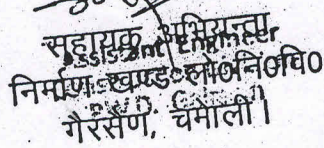 सहायक अभियन्ता
Assistant Engineer
निर्माण खण्ड लो०नि०वि०
गैरसैंण, चमोली।